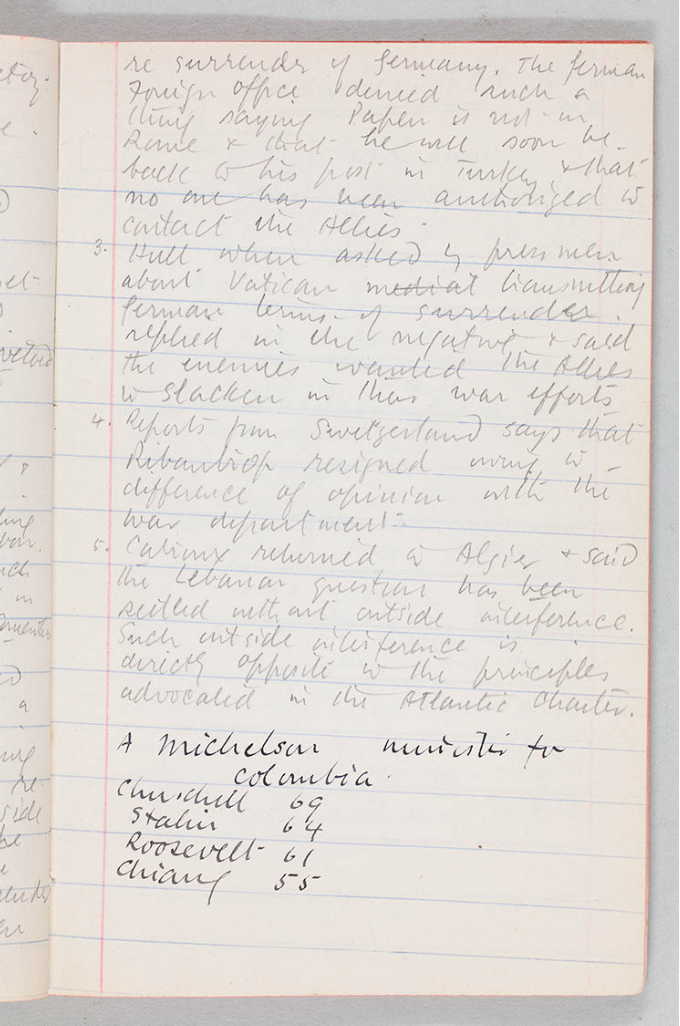 re surrender of Germany. The German
Foreign Office denied such a
thing saying Papen is not in
Rome & that he will soon be
back to his post in Turkey & that
no one has been authorized to
contact the Allies.
3. Hull when asked by pressmen
about Vatican mediat transmitting
German terms of surrender.
replied in the negative & said
the enemies wanted the Allies
to slacken in their war efforts
4. Reports from Switzerland says that
Ribbentrop resigned owing to
difference of opinion with the
war department.
5. Catroux returned to Algier & said
the Lebanon question has been
settled without outside interference.
Such outside interference is
directly opposite to the principles
advocated in the Atlantic Charter.
A Michelson minister for
Colombia.
Churchill 69
Stalin 64
Roosevelt 61
Chiang 55